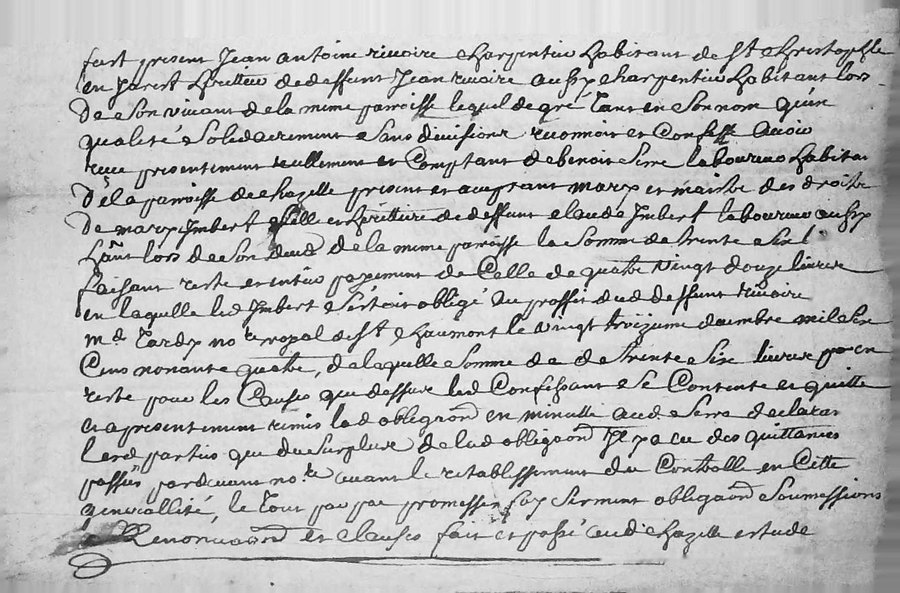 fust present Jean antoine rivoire charpentier habitant de st christophle
en Jarest heritier de deffunt Jean rivoire aussy charpentier habitant lors
de son vivant de la mime parroisse lequel de gré tant en son nom qu'en
qualité solidairement sans division reconnoit et confesse avoir
receu presentement reellement et comptant de benoit serre laboureur habitant
de la parroisse de chazelle present et acceptant marÿ et maistre des droits
de marÿ Imbert fille et heritiere de deffunt claude Imbert laboureur aussy
hant lors de son de la mime parroisse la somme de trente six l
faisant reste et entier payement de celle de quatre vingt douze livres
en laquelle led Imbert s'estoit obligé au proffit dud deffunt rivoire
md Tardy nore royal de st chaumont le vingt troizieme decembre mil six
cens nonante quatre, de laquelle somme de de trente six livres pour
reste pour les causes que dessus led confessant se contente et quitte
et a presentement remis lad obligaon en minutte aud serre declarant
lesd parties que du surplus de lad obligaon Il y a eu des quittances
passées pardevant nore avant le restablissement du controlle en cette
generallité, le tout par promesses foy serment obligaon soumissions
Renonciaon et clauses fait et passé aud chazelle estude